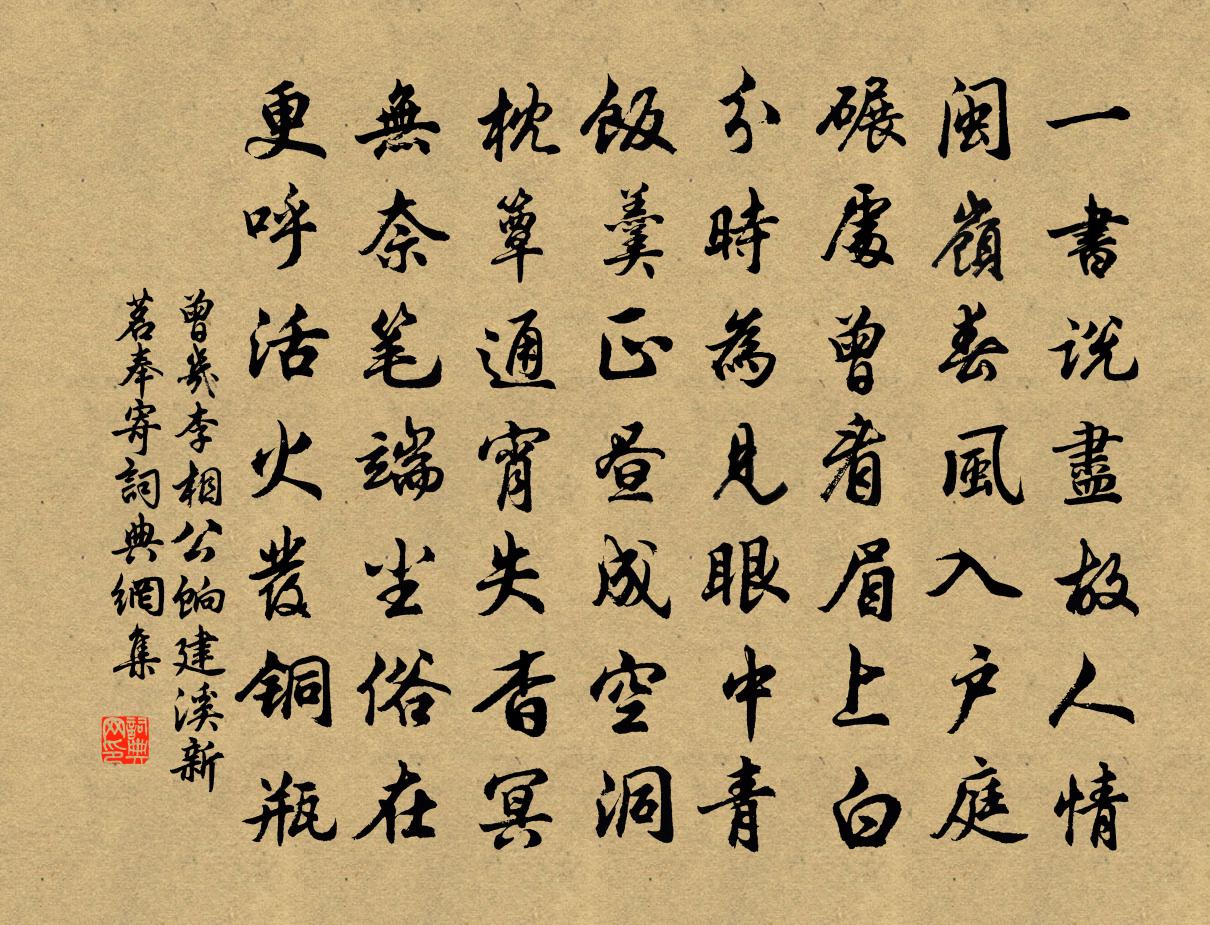 一書說盡故人情
閩嶺春風入户庭
碾處曾看眉上白
分時為見眼中青
飯羹正晝成空洞
枕簟通宵失杳冥
無奈笔端塵俗在
更呼活火發銅瓶
曾幾李相公餉建溪新
茗奉寄詞典網集
詞典
网印